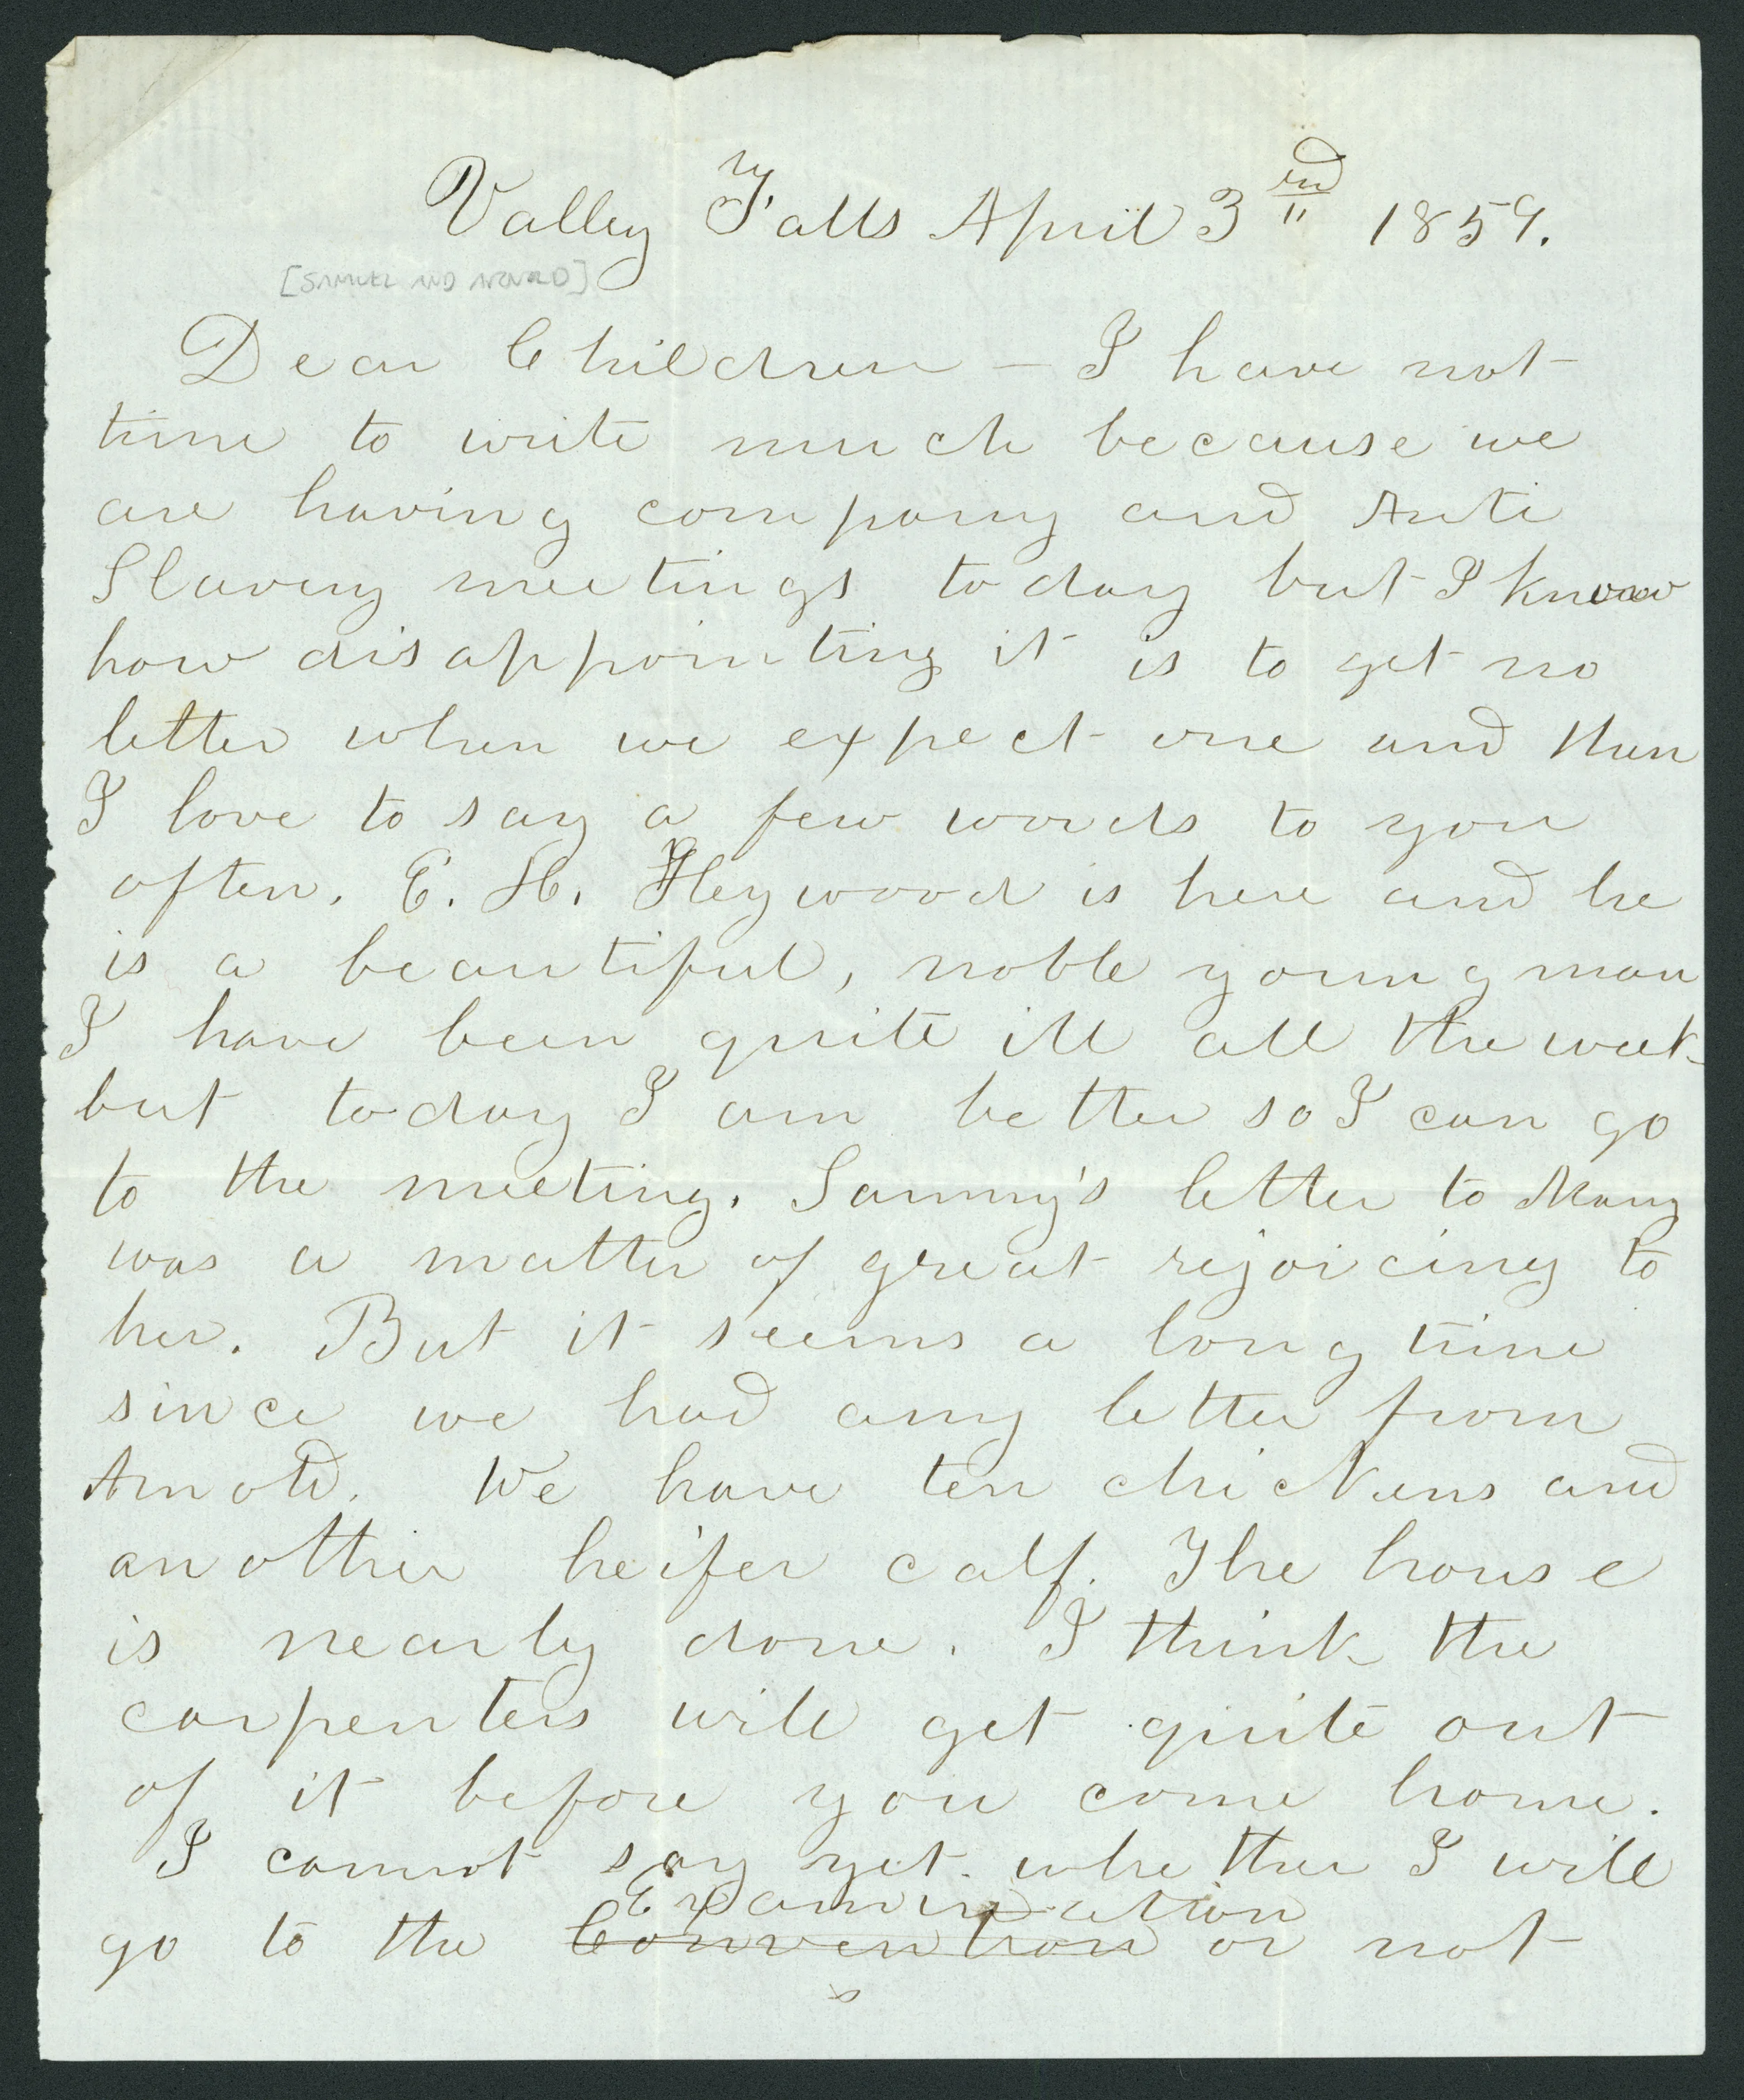 Valley Falls April 3nd 1859.
[SAMUEL AND ARNOLD]
Dear Children – I have not
time to write much because we
are having company and Anti
Slavery meetings to day but I know
how disappointing it is to get no
letter when we expect one and then
I love to say a few words to you
often. E. H. Heywood is here and he
is a beautiful, noble young man
I have been quite ill all the week
but to-day I am better so I can go
to the meeting. Sammy's letter to Mary
was a matter of great rejoicing to
her. But it seems a long time
since we had any letter from
Arnold. We have ten chickens and
another heifer calf. The house
is nearly done. I think the
carpenters will get quite out
of it before you come home.
I cannot say yet whether I will
Examination
go to the Convention or not